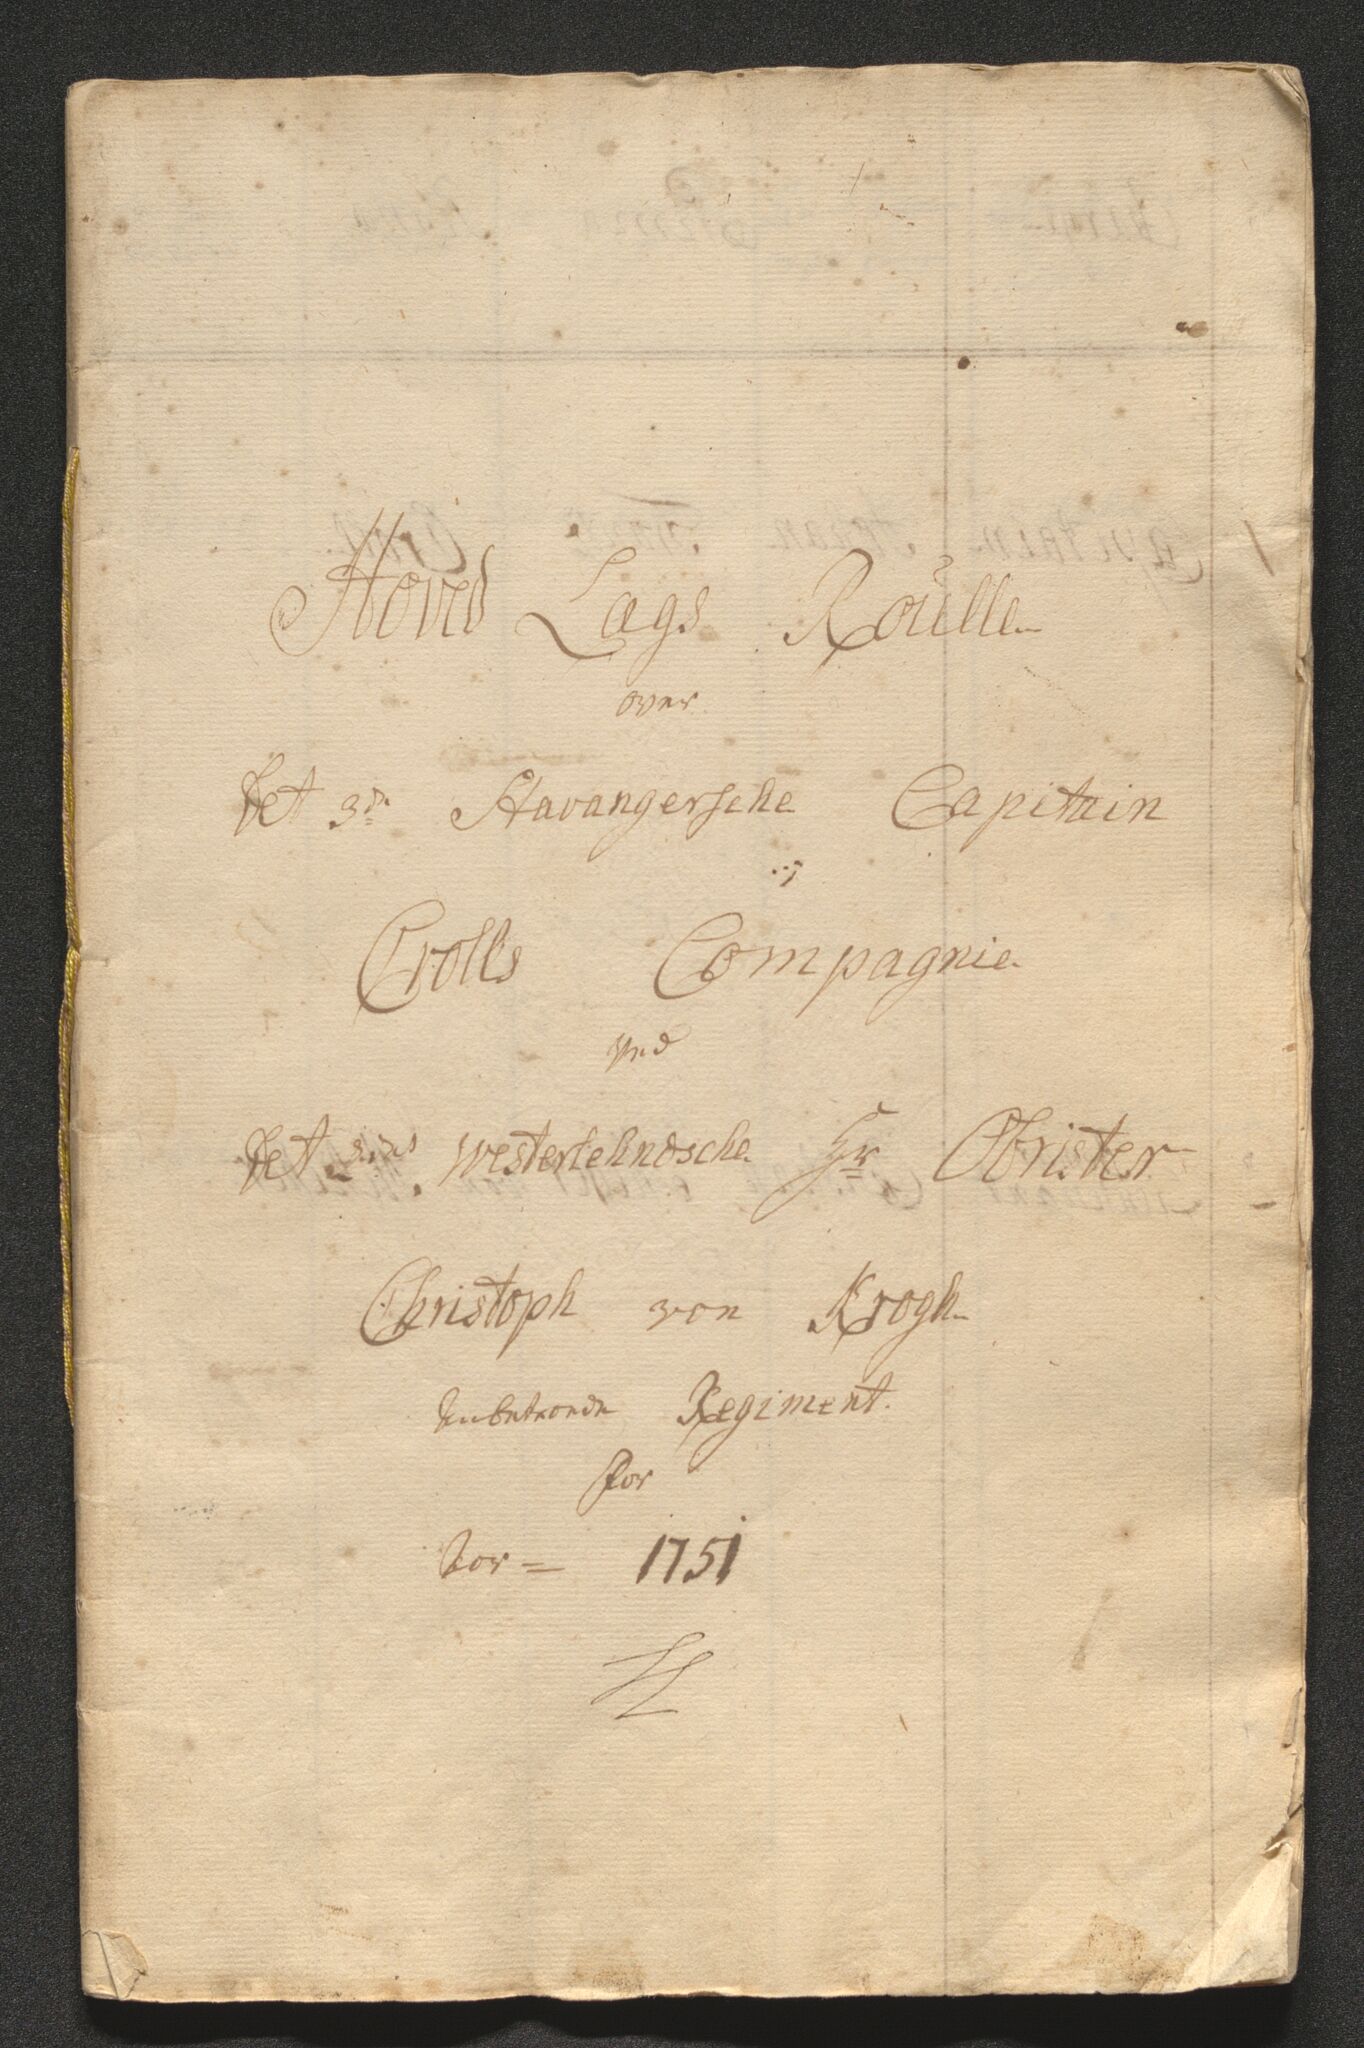 Hoved Lags Roulle
over
Det 3de Stavangerske Capitain
Crolls Compagnie
Ved
Det 2det Westerlehndsche Hr Obrister
Christoph von Krogh
Anbetroede Regiment.
For
1751